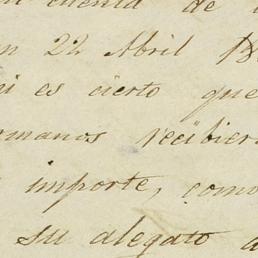 cuenta de
22 Abril
ni es cierto que
rmanos recibier
importe, como
su alegato a